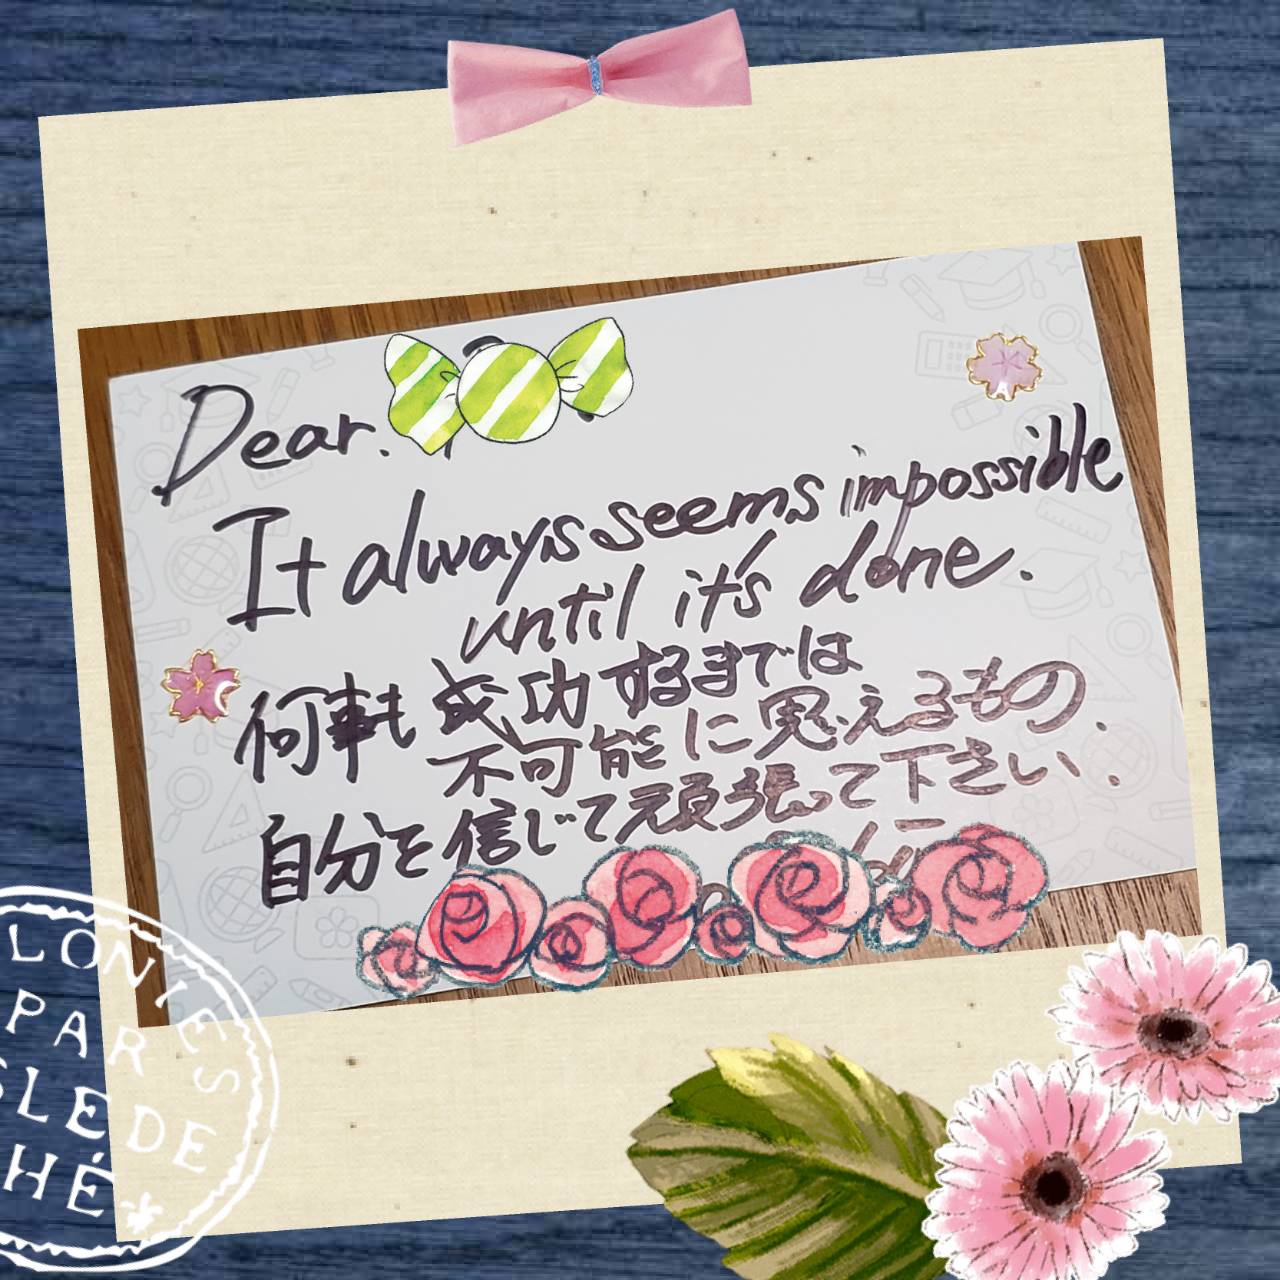 Dear.
It always seems impossible
until it's done.
何事も成功するまでは
不可能に思えるもの.
自分を信じて頑張って下さい.
LONIES
PAR
SLEDE
HÉ